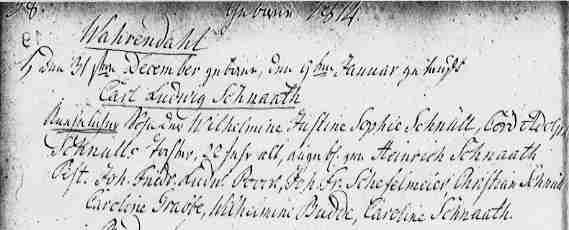 18. geboren 1814.
Wahrendahl
5, Den 31sten December geboren, den 9ten Januar getauft
Carl Ludwig Schnaath
Sohn der Wilhelmine Justine Sophie Schnüll, Cord
Schnülls Tochter, 22 Jahr alt, angebl. von Heinrich Schnaath
Test. Joh. Fridr. Ludw. Joh. Fr. Schefelmeier Christian Schnüll
Caroline Grabbe, Wilhelmine Budde, Caroline Schnaath.